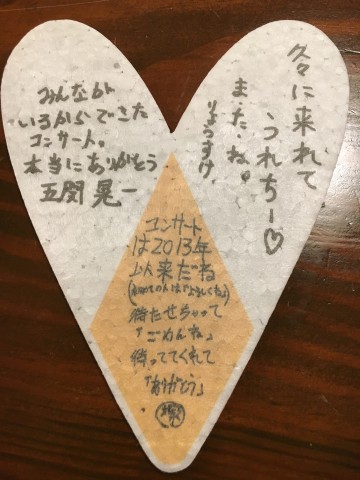 久々に来れて
うれちー♡
また、ね。
りょうすけ
みんなが
いるからできた
コンサート。
本当にありがとう
五関晃一
コンサート
は2013年
以来だね
(初めての人はよろしくね)
待たせちゃって
「ごめんね」
待っててくれて
「ありがとう」
塚